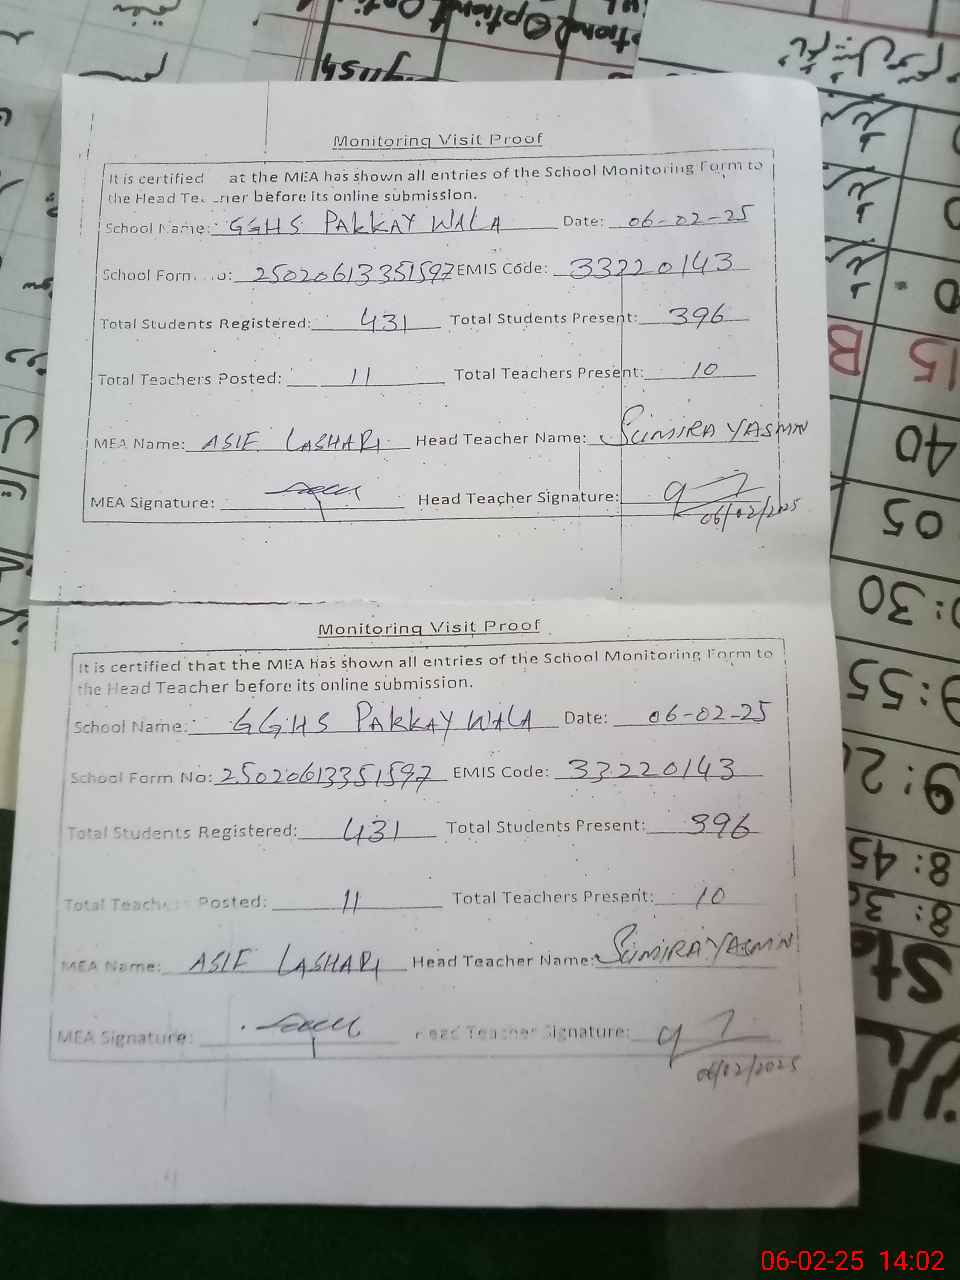 Monitoring Visit Proof
It is certified at the MEA has shown all entries of the School Monitoring Form to
the Head before its online submission.
School Name: GGHS PAKKAY WALA Date: 06-02-25
School Form No: 25020613351597 EMIS Code: 33220143
Total Students Registered: 431 Total Students Present: 396
Total Teachers Posted: 11 Total Teachers Present: 10
MEA Name: ASIF LASHARI Head Teacher Name: SUMIRA YASMIN
MEA Signature: Head Teacher Signature:
06/02/2025
Monitoring Visit Proof
It is certified that the MEA has shown all entries of the School Monitoring Form to
the Head Teacher before its online submission.
School Name: GGHS PAKKAY WALA Date: 06-02-25
School Form No: 25020613351597 EMIS Code: 33220143
Total Students Registered: 431 Total Students Present: 396
Total Teachers Posted: 11 Total Teachers Present: 10
MEA Name: ASIF LASHARI Head Teacher Name: SUMIRA YASMIN
MEA Signature: Head Teacher Signature:
06/02/2025
15 B
40
05
:30
:55
8:45
06-02-25 14:02